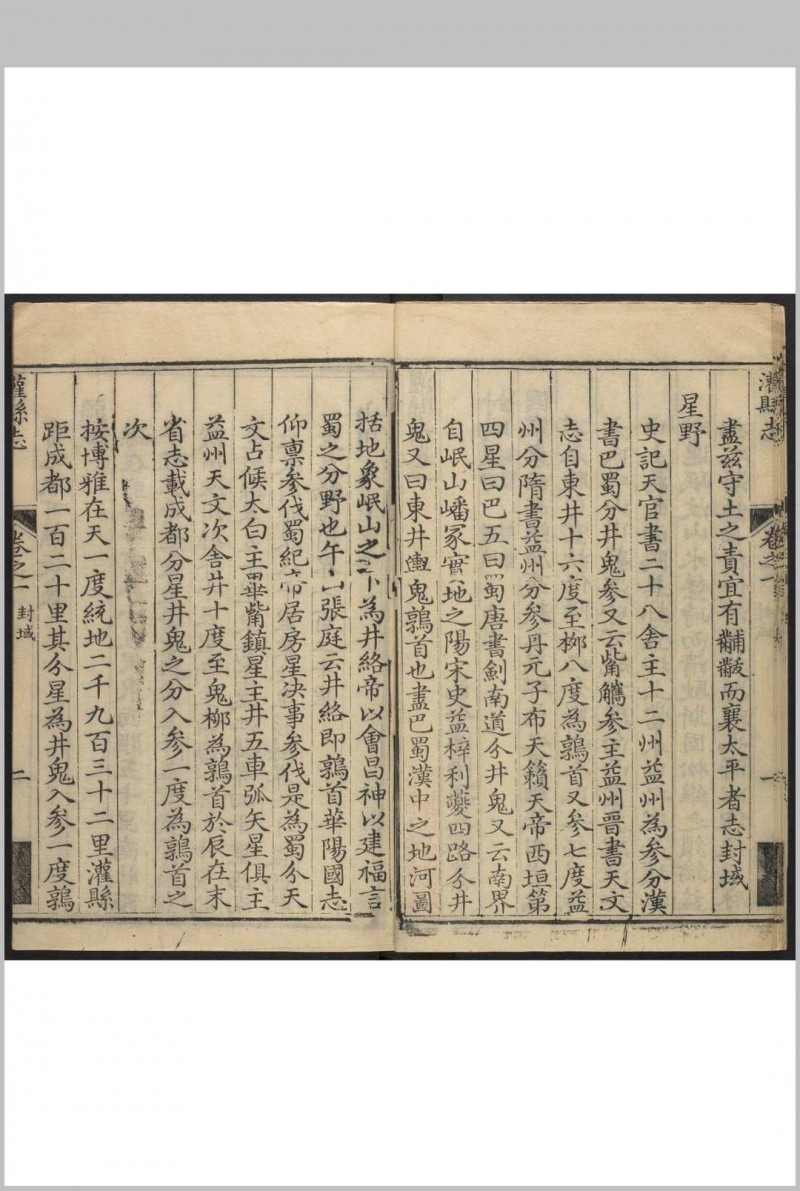 灌縣志
卷之一
一
盡茲守土之責宜有黼黻而襄太平者志封域
星野
史記天官書二十八舍主十二州益州為參分漢
書巴蜀分井鬼參又云觜觿參主益州晉書天文
志自東井十六度至柳八度為鶉首又參七度益
州分隋書益州分參丹元子布天籟天帝西垣第
四星曰巴五曰蜀唐書劍南道分井鬼又云南界
自岷山嶓冢實地之陽宋史益梓利夔四路分井
鬼又曰東井輿鬼鶉首也盡巴蜀漢中之地河圖
括地象岷山之下為井絡帝以會昌神以建福言
蜀之分野也午張庭云井絡即鶉首華陽國志
仰禀參伐蜀紀帝居房星决事參伐是為蜀分天
文占候太白主畢觜鎮星主井五車弧矢星俱主
益州天文次舍井十度至鬼柳為鶉首於辰在未
省志載成都分星井鬼之分入參一度為鶉首之
次
按博雅在天一度統地二千九百三十二里灌縣
距成都一百二十里其分星為井鬼入參一度鶉
灌縣志
卷之一
封域
二